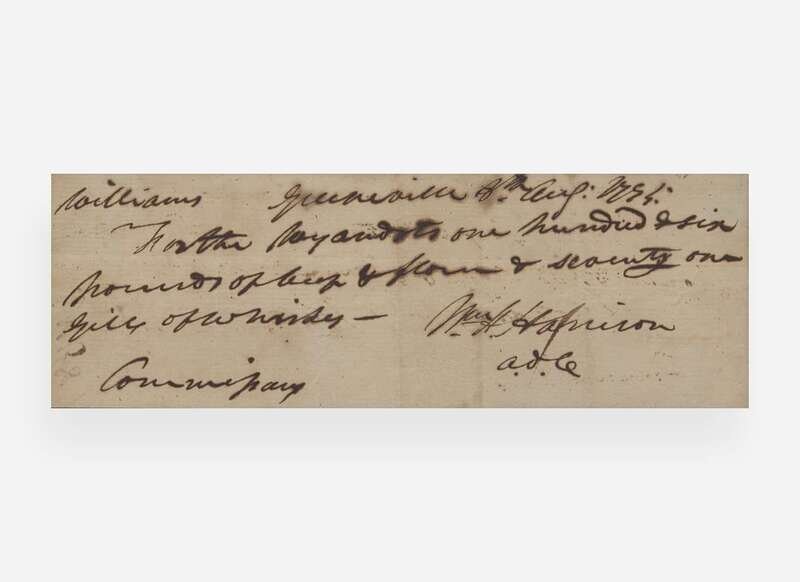 Williams Greeneville 8th Aug: 1795.
For the Wyandots one hundred & six
pounds of beef & flour & seventy one
Gills of Whiskey —
Wm. H. Harrison
a.d.C
Commissary